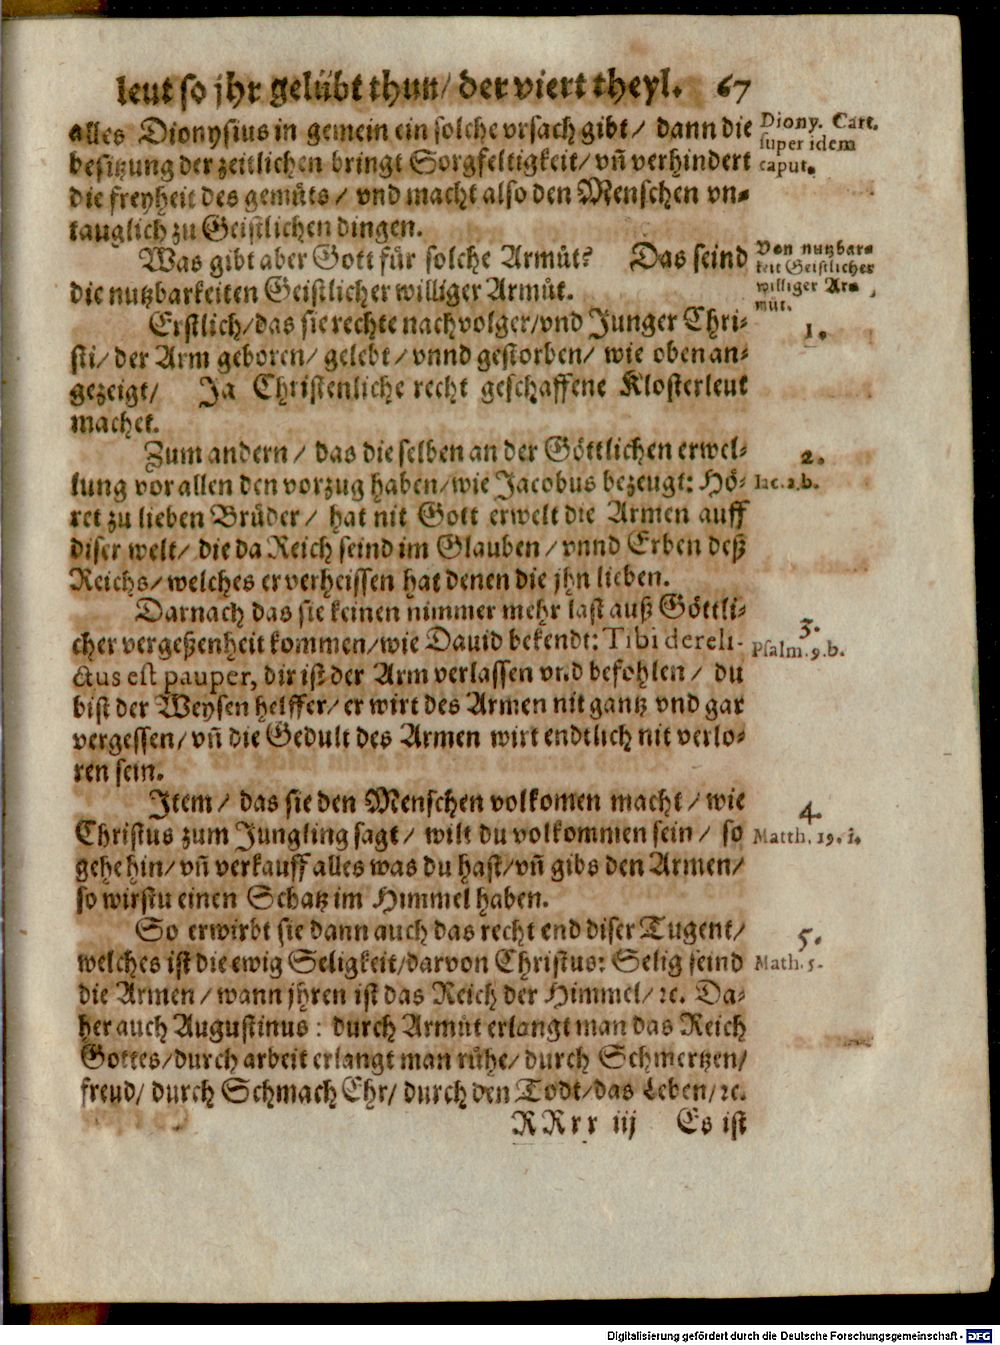 leut so jhr gelübt thun/ der viert theyl. 67
alles Dionysius in gemein ein solche vrsach gibt/ dann die
besitzung der zeitlichen bringt Sorgfeltigkeit/ vñ verhindert
die freyheit des gemüts/ vnd macht also den Menschen vn⸗
tauglich zu Geistlichen dingen.
Diony. Cart.
super idem
caput.
Was gibt aber Gott für solche Armůt? Das seind
die nutzbarkeiten Geistlicher williger Armůt.
Von nutzbar⸗
keit Geistlicher
williger Ar⸗
můt.
Erstlich/ das sie rechte nachvolger/ vnd Junger Chri⸗
sti/ der Arm geboren/ gelebt/ vnnd gestorben/ wie oben an⸗
gezeigt/ Ja Christenliche recht geschaffene Klosterleut
machet.
1.
Zum andern/ das die selben an der Göttlichen erwel⸗
lung vor allen den vorzug haben/ wie Jacobus bezeugt: Hö⸗
ret zu lieben Brüder/ hat nit Gott erwelt die Armen auff
diser welt/ die da Reich seind im Glauben/ vnnd Erben deß
Reichs/ welches er verheissen hat denen die jhn lieben.
2.
Iac. 2. b.
Darnach das sie keinen nimmer mehr last auß Göttli⸗
cher vergeßenheit kommen/ wie Dauid bekendt: Tibi dereli-
ctus est pauper, dir ist der Arm verlassen vnd befohlen/ du
bist der Weysen helffer/ er wirt des Armen nit gantz vnd gar
vergessen/ vñ die Gedult des Armen wirt endtlich nit verlo⸗
ren sein.
3.
Psalm. 9. b.
Item/ das sie den Menschen volkomen macht/ wie
Christus zum Jungling sagt/ wilt du volkommen sein/ so
gehe hin/ vñ verkauff alles was du hast/ vñ gibs den Armen/
so wirstu einen Schatz im Himmel haben.
4.
Matth. 19.
So erwirbt sie dann auch das recht end diser Tugent/
welches ist die ewig Seligkeit/ darvon Christus: Selig seind
die Armen/ wann jhren ist das Reich der Himmel/ ꝛc. Da⸗
her auch Augustinus: durch Armůt erlangt man das Reich
Gottes/ durch arbeit erlangt man růhe/ durch Schmertzen/
freud/ durch Schmach Ehr/ durch den Todt/ das Leben/ ꝛc.
5.
Math. 5.
RRrr iij Es ist
Digitalisierung gefördert durch die Deutsche Forschungsgemeinschaft - DFG